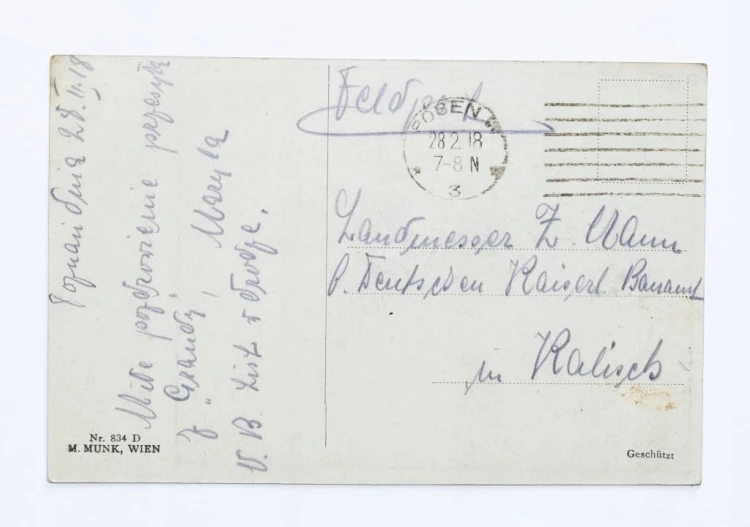 Poznań dnia 28.II.18
Miłe pozdrowienie przesyła
z "Grandy" Maryla
N.B. List w drodze.
Nr. 834 D
M. MUNK, WIEN
Feldpost
POSEN
28.2.18
7-8 N
3
Landmesser Z. Mann
b. Deutschen Kaiserl. Bauamt
in Kalisch
Geschützt